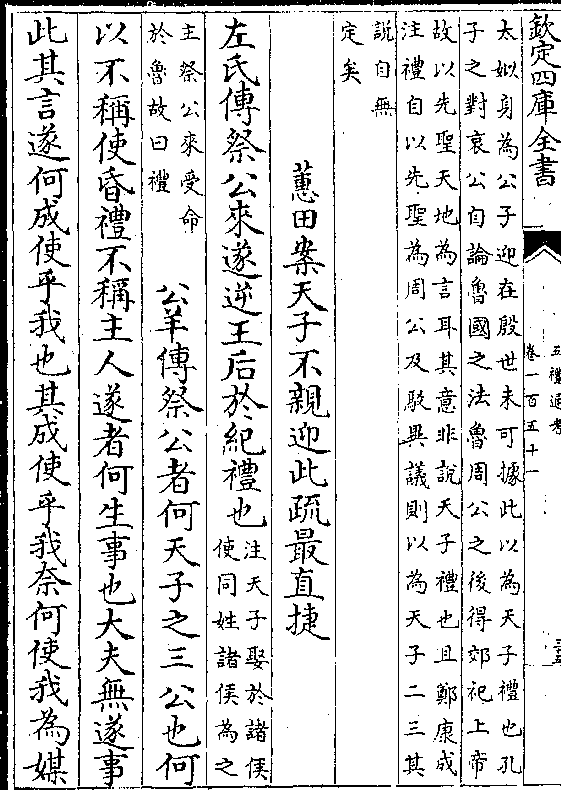 欽定四庫全書
五禮通考
卷一百五十一
太姒身為公子迎在殷世未可據此以為天子禮也孔
子之對哀公自論魯國之法魯周公之後得郊祀上帝
故以先聖天地為言耳其意非說天子禮也且鄭康成
注禮自以先聖為周公及駁異議則以為天子二三其
說自無
定矣
蕙田案天子不親迎此疏最直捷
左氏傳祭公來遂逆王后於紀禮也注天子娶於諸侯
使同姓諸侯為之
主祭公來受命
於魯故曰禮
公羊傳祭公者何天子之三公也何
以不稱使昏禮不稱主人遂者何生事也大夫無遂事
此其言遂何成使乎我也其成使乎我奈何使我為媒